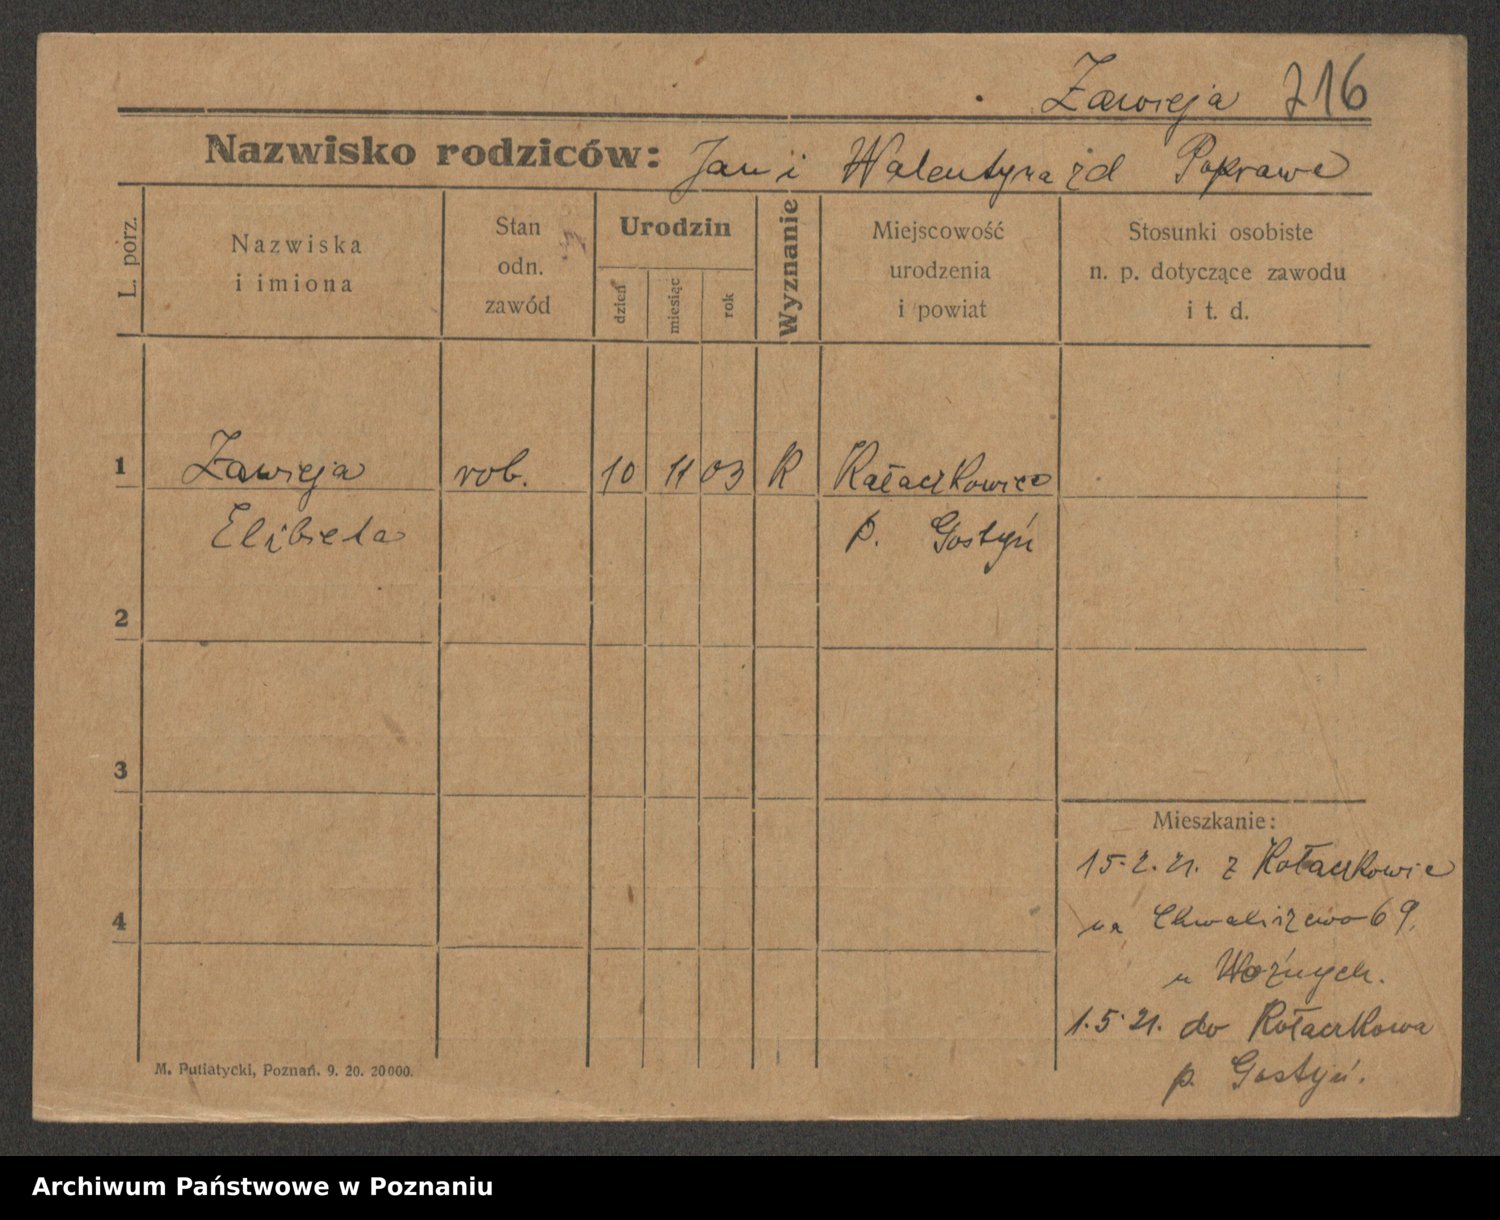 Zawieja 716
Nazwisko rodziców: Jan i Walentyna zd Poprawa
L. porz.
Nazwiska
i imiona
Stan
odn.
zawód
Urodzin
dzień
miesiąc
rok
Wyznanie
Miejscowość
urodzenia
i powiat
Stosunki osobiste
n. p. dotyczące zawodu
i t. d.
1 Zawieja rob. 10 11 03 K Kołaczkowice
Elżbieta p. Gostyń
2
3
Mieszkanie:
15.2.21. z Kołaczkowic
4
na Chwaliszewo 69.
u Woźnych.
1.5.21. do Kołaczkowa
p. Gostyń.
M. Putiatycki, Poznań. 9. 20. 20000.
Archiwum Państwowe w Poznaniu